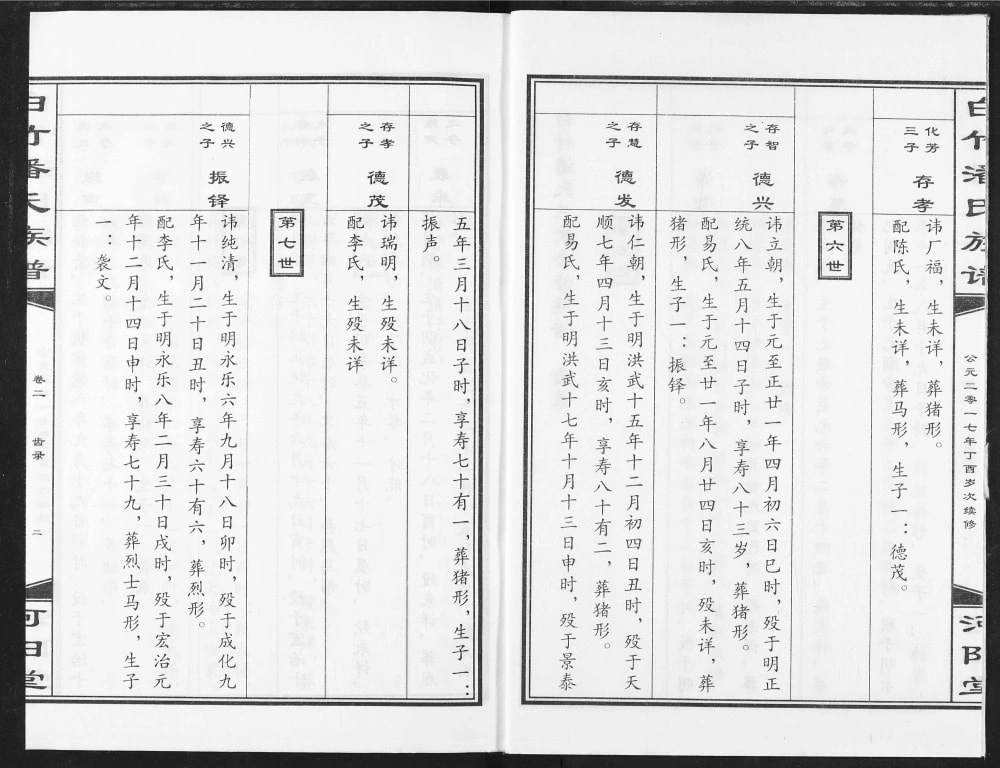 白竹潘氏族谱
公元二零一七年丁酉岁次续修
河阳堂
化芳三子 存孝
讳厂福，生未详，葬猪形。
配陈氏，生未详，葬马形，生子一：德茂。
第六世
存智之子 德兴
讳立朝，生于元至正廿一年四月初六日巳时，殁于明正
统八年五月十四日子时，享寿八十三岁，葬猪形。
配易氏，生于元至廿一年八月廿四日亥时，殁未详，葬
猪形，生子一：振铎。
存慧之子 德发
讳仁朝，生于明洪武十五年十二月初四日丑时，殁于天
顺七年四月十三日亥时，享寿八十有二，葬猪形。
配易氏，生于明洪武十七年十月十三日申时，殁于景泰
五年三月十八日子时，享寿七十有一，葬猪形，生子一：
振声。
存孝之子 德茂
讳瑞明，生殁未详。
配李氏，生殁未详
第七世
德兴之子 振铎
讳纯清，生于明永乐六年九月十八日卯时，殁于成化九
年十一月二十日丑时，享寿六十有六，葬烈形。
配李氏，生于明永乐八年二月三十日戌时，殁于宏治元
年十二月十四日申时，享寿七十九，葬烈士马形，生子
一：袭文。
白竹潘氏族谱
卷二 齿录 二
河阳堂